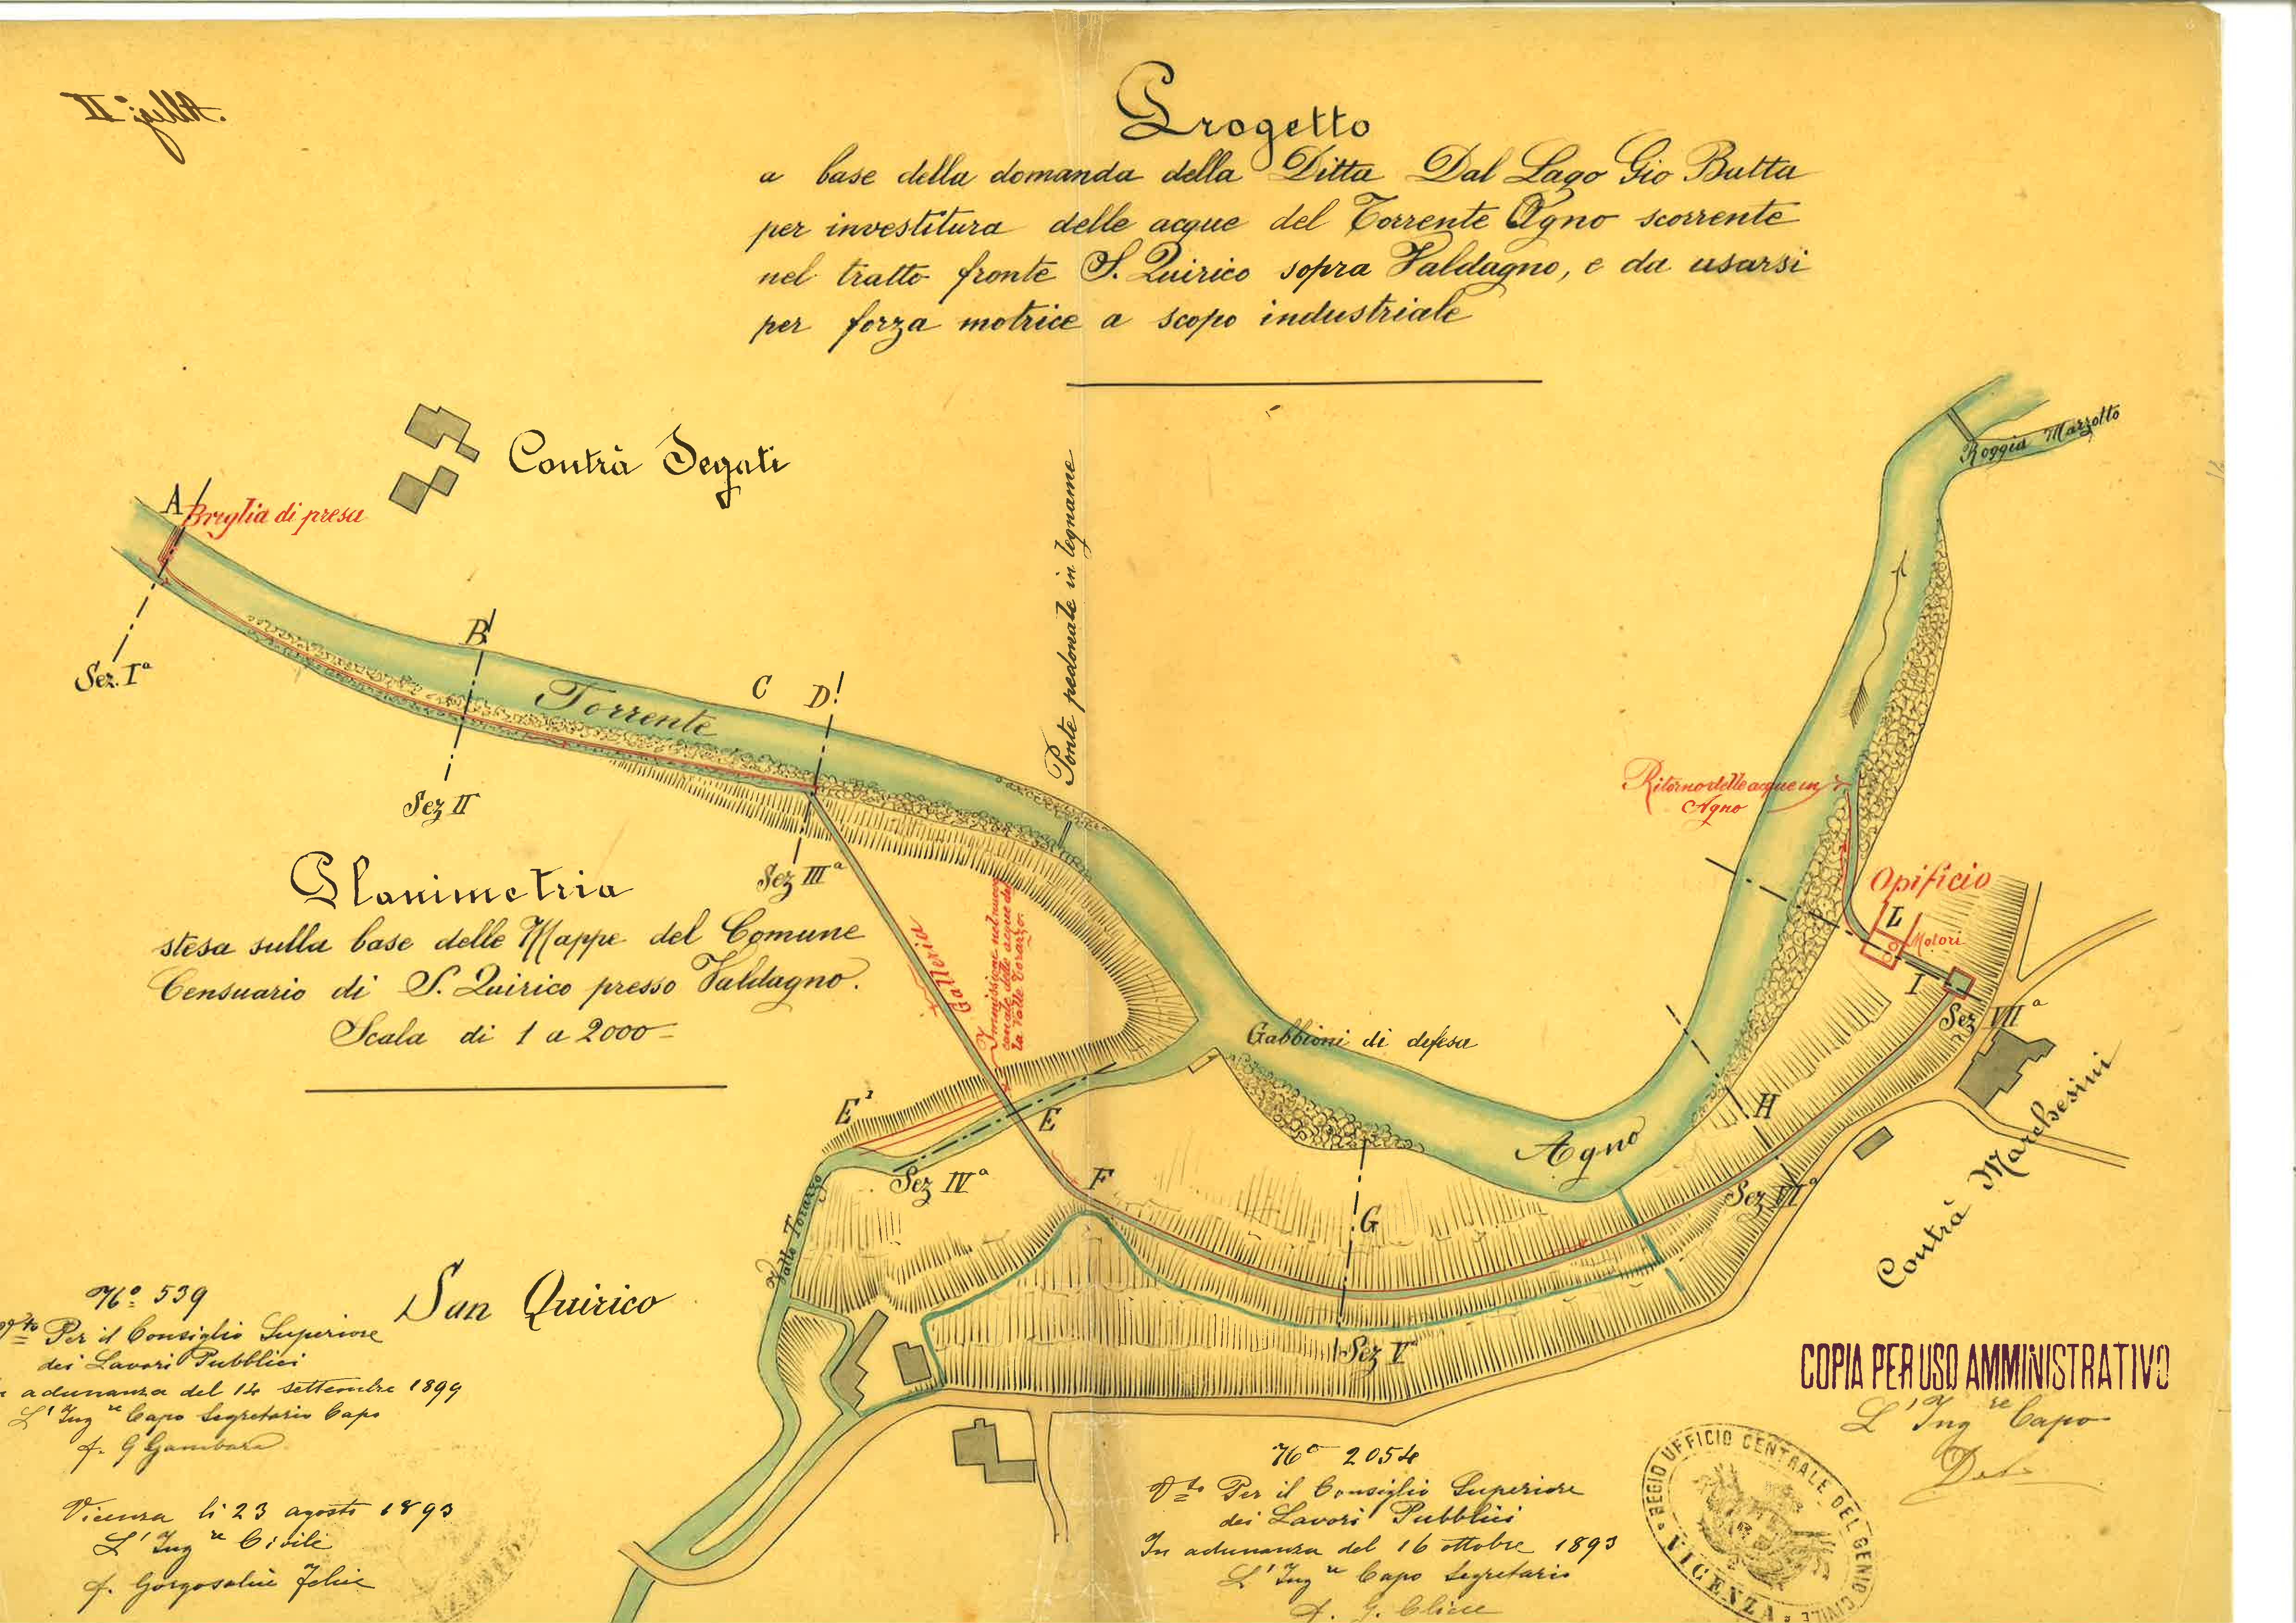 Alleg. II
Progetto
a base della domanda della Ditta Dal Lago Gio Batta
per investitura delle acque del Torrente Agno scorrente
nel tratto fronte S. Quirico sopra Valdagno, e da usarsi
per forza motrice a scopo industriale
Roggia Marzotto
Contrà Segati
A
Briglia di presa
Sez. Iª
B
Sez II
Torrente
C
D
Sez IIIª
Ponte pedonale in legname
Planimetria
stesa sulla base delle Mappe del Comune
Censuario di S. Quirico presso Valdagno.
Scala di 1 a 2000
Galleria
Immissione nel nuovo
canale delle acque del
la Valle Torazzo.
Gabbioni di defesa
Ritorno delle acque in
Agno
Opificio
L
Motori
I
Sez VIIª
E'
E
Sez IVª
F
Agno
H
G
Sez VIª
Sez Vª
Contrà Marchesini
Valle Torazzo
San Quirico
Nº 539
Per il Consiglio Superiore
dei Lavori Pubblici
adunanza del 14 settembre 1899
L'Ingre Capo Segretario Capo
f. G Gambara
Vicenza li 23 agosto 1893
L'Ingre Civile
Nº 2054
Vto Per il Consiglio Superiore
dei Lavori Pubblici
In adunanza del 16 ottobre 1893
L'Ingre Capo Segretario
COPIA PER USO AMMINISTRATIVO
L'Ingre Capo
REGIO UFFICIO CENTRALE DEL GENIO CIVILE
VICENZA